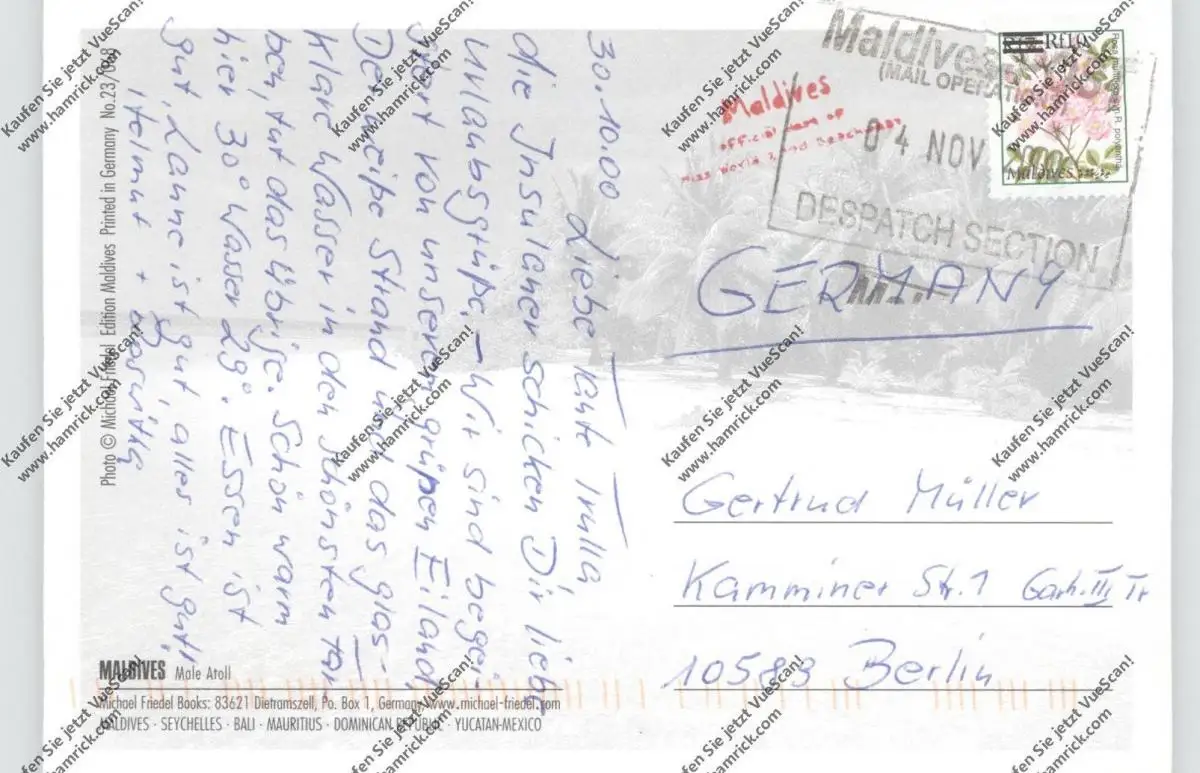 30.10.00
Liebe Tante Trulla,
die Insulaner schicken Dir liebe
Urlaubsgrüße. – Wir sind begei-
stert von unserem grünen Eiland
Der weiße Strand und das glas-
klare Wasser in den schönsten Far
ben, tut das übrige. Schön warm
hier 30° Wasser 29°. Essen ist
gut, Laune ist gut, alles ist gut!
Helmut +
Photo © Michael Friedel Edition Maldives Printed in Germany No.23/088
MALDIVES Male Atoll
Michael Friedel Books: 83621 Dietramszell, Po. Box 1, Germany www.michael-friedel.com
MALDIVES · SEYCHELLES · BALI · MAURITIUS · DOMINICAN REPUBLIC · YUCATAN-MEXICO
Maldives
(MAIL OPERAT
04 NOV
DESPATCH SECTION
MALE
Maldives
official name of
Miss World Island Beach
RF10
Maldives
GERMANY
Gertrud Müller
Kamminer Str. 1 Garth. III Tr
10583 Berlin
Kaufen Sie jetzt VueScan!
www.hamrick.com